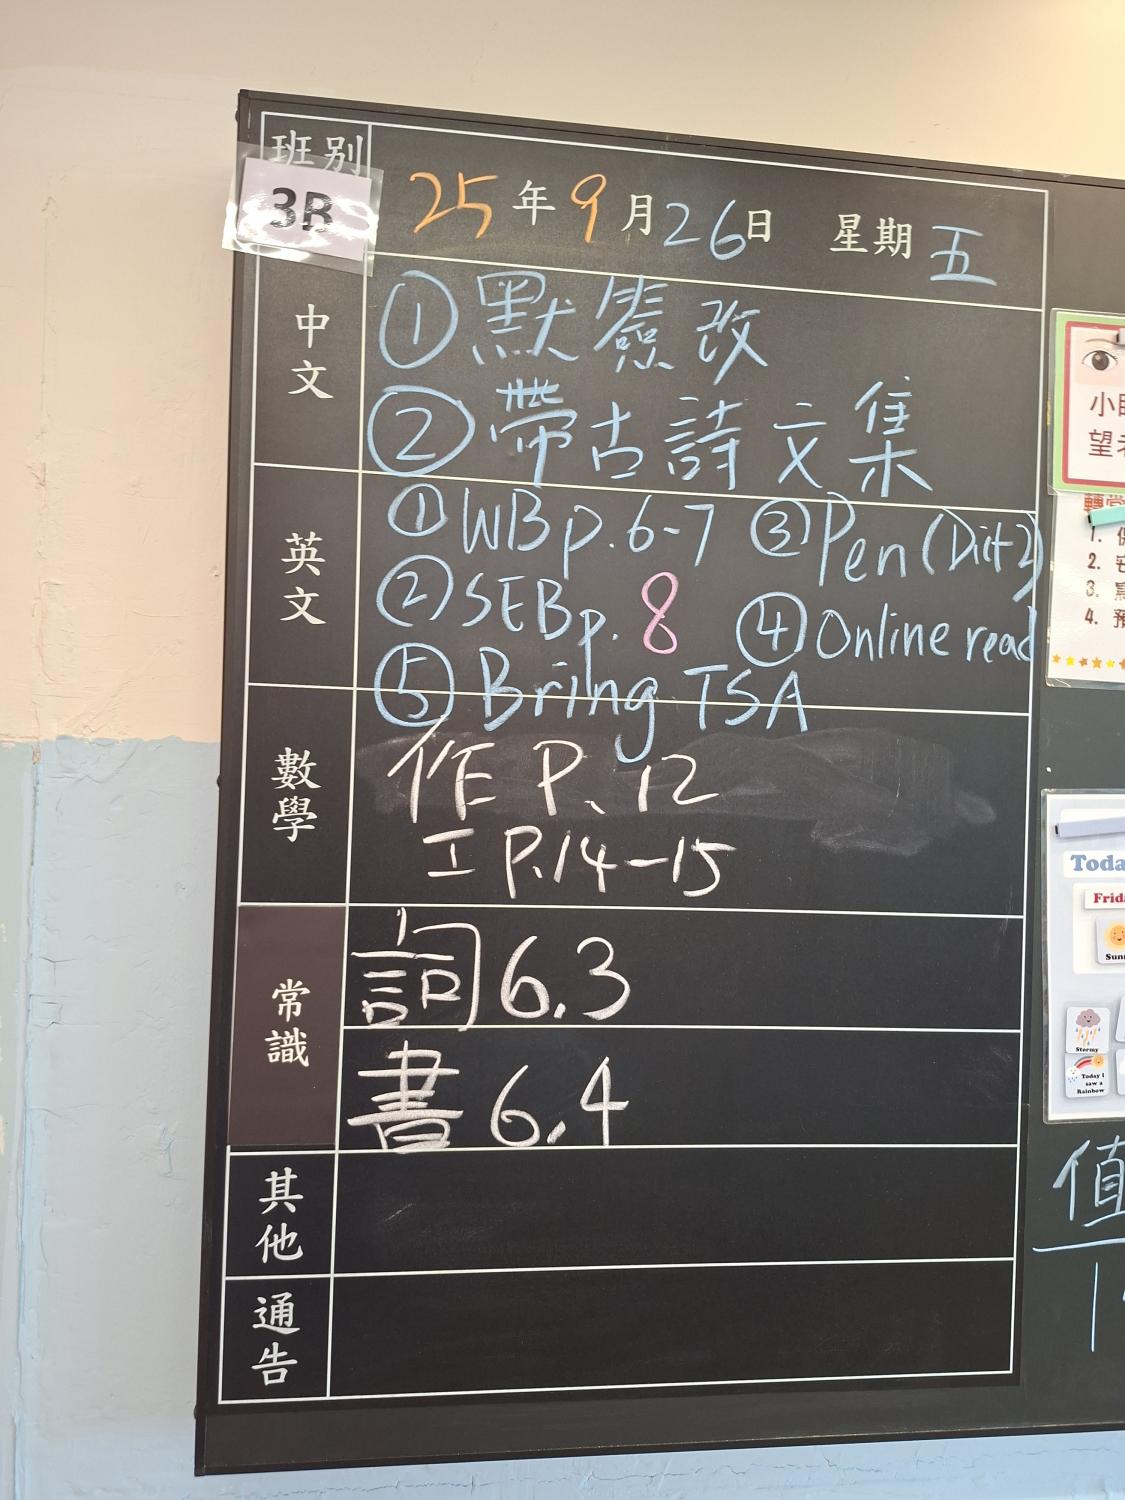 班別
3B
25年9月26日 星期五
中文
①默簽改
②帶古詩文集
英文
①WB p.6-7 ③Pen (Dict 2)
②SEB p. 8 ④Online read
⑤Bring TSA
數學
作 P. 12
工 P.14-15
常識
詞 6.3
書 6.4
其他
通告
望
1.
2.
3.
4.
Toda
Frid
Sunn
Stormy
Today I
saw a
Rainbow
值